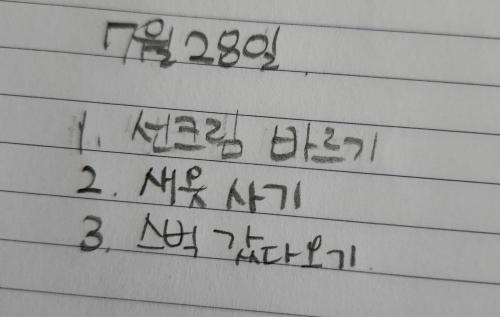 7월 28일
1. 선크림 바르기
2. 새옷 사기
3. 스벅 갔다오기